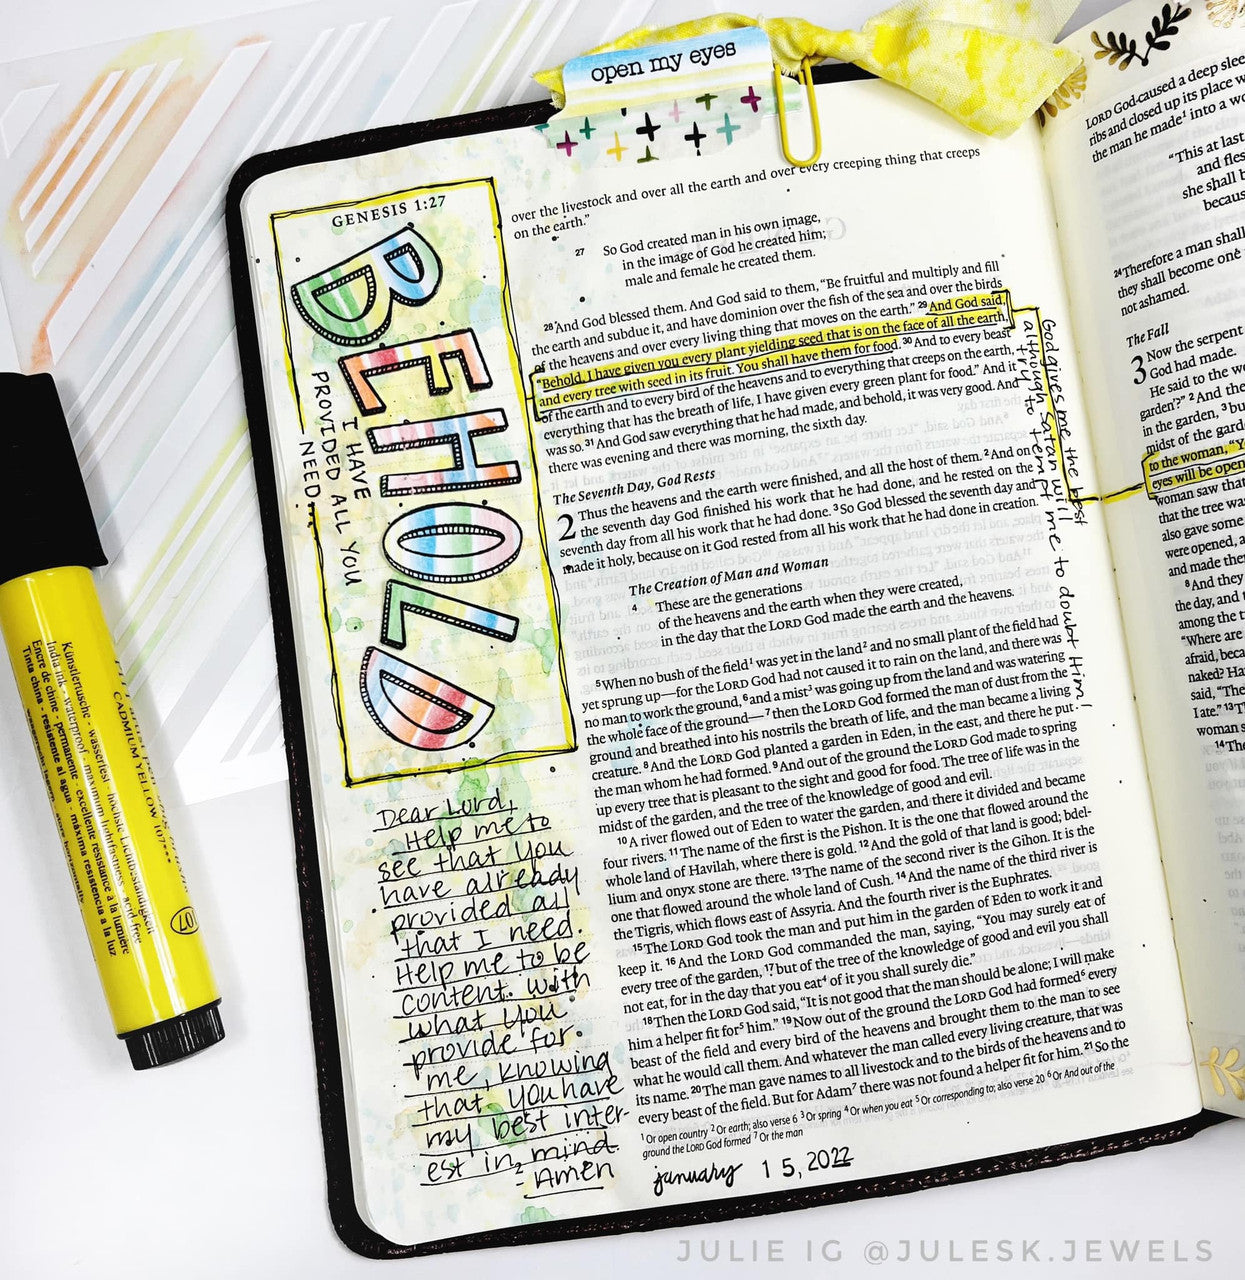 open my eyes
GENESIS 1:27
BEHOLD
I HAVE
PROVIDED ALL YOU
NEED...
Dear Lord,
Help me to
see that you
have already
provided all
that I need.
Help me to be
content with
what you
provide for
me, knowing
that you have
my best inter-
est in mind.
- Amen
over the livestock and over all the earth and over every creeping thing that creeps
on the earth."
27 So God created man in his own image,
in the image of God he created him;
male and female he created them.
28 And God blessed them. And God said to them, "Be fruitful and multiply and fill
the earth and subdue it, and have dominion over the fish of the sea and over the birds
of the heavens and over every living thing that moves on the earth." 29 And God said,
"Behold, I have given you every plant yielding seed that is on the face of all the earth,
and every tree with seed in its fruit. You shall have them for food. 30 And to every beast
of the earth and to every bird of the heavens and to everything that creeps on the earth,
everything that has the breath of life, I have given every green plant for food." And it
was so. 31 And God saw everything that he had made, and behold, it was very good. And
there was evening and there was morning, the sixth day.
The Seventh Day, God Rests
2 Thus the heavens and the earth were finished, and all the host of them. 2 And on
the seventh day God finished his work that he had done, and he rested on the
seventh day from all his work that he had done. 3 So God blessed the seventh day and
made it holy, because on it God rested from all his work that he had done in creation.
The Creation of Man and Woman
4 These are the generations
of the heavens and the earth when they were created,
in the day that the LORD God made the earth and the heavens.
5 When no bush of the field1 was yet in the land2 and no small plant of the field had
yet sprung up—for the LORD God had not caused it to rain on the land, and there was
no man to work the ground, 6 and a mist3 was going up from the land and was watering
the whole face of the ground— 7 then the LORD God formed the man of dust from the
ground and breathed into his nostrils the breath of life, and the man became a living
creature. 8 And the LORD God planted a garden in Eden, in the east, and there he put
the man whom he had formed. 9 And out of the ground the LORD God made to spring
up every tree that is pleasant to the sight and good for food. The tree of life was in the
midst of the garden, and the tree of the knowledge of good and evil.
10 A river flowed out of Eden to water the garden, and there it divided and became
four rivers. 11 The name of the first is the Pishon. It is the one that flowed around the
whole land of Havilah, where there is gold. 12 And the gold of that land is good; bdel-
lium and onyx stone are there. 13 The name of the second river is the Gihon. It is the
one that flowed around the whole land of Cush. 14 And the name of the third river is
the Tigris, which flows east of Assyria. And the fourth river is the Euphrates.
15 The LORD God took the man and put him in the garden of Eden to work it and
keep it. 16 And the LORD God commanded the man, saying, "You may surely eat of
every tree of the garden, 17 but of the tree of the knowledge of good and evil you shall
not eat, for in the day that you eat4 of it you shall surely die."
18 Then the LORD God said, "It is not good that the man should be alone; I will make
him a helper fit for5 him." 19 Now out of the ground the LORD God had formed6 every
beast of the field and every bird of the heavens and brought them to the man to see
what he would call them. And whatever the man called every living creature, that was
its name. 20 The man gave names to all livestock and to the birds of the heavens and to
every beast of the field. But for Adam7 there was not found a helper fit for him. 21 So the
1 Or open country 2 Or earth; also verse 6 3 Or spring 4 Or when you eat 5 Or corresponding to; also verse 20 6 Or And out of the
ground the LORD God formed 7 Or the man
January 15, 2022
God gives me the best
although Satan will
try to tempt me to doubt Him!
LORD God caused a deep slee
ribs and closed up its place w
the man he made1 into a wo
"This at last
and fles
she shall b
becaus
24 Therefore a man shall
they shall become one
not ashamed.
The Fall
3 Now the serpent
God had made.
He said to the wo
garden'?" 2 And the
in the garden, 3 bu
midst of the gard
to the woman, "Y
eyes will be open
woman saw that
that the tree was
also gave some
were opened, a
and made the
8 And they
the day, and t
among the t
"Where are
afraid, beca
naked? Ha
said, "The
I ate." 13 T
woman s
14 The
CADMIUM YELLOW 107***
Künstlertusche · wasserfest · höchste Lichtbeständigkeit
India ink · waterproof · maximum lightfastness · acid free
Encre de chine · permanente · excellente résistance à la lumière
Tinta china · resistente al agua · máxima resistencia a la luz
107
JULIE IG @JULESK.JEWELS